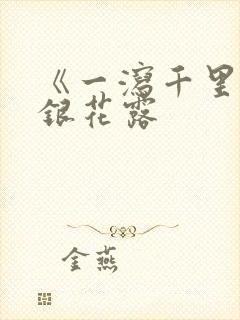 《一瀉千里
銀花露
金燕